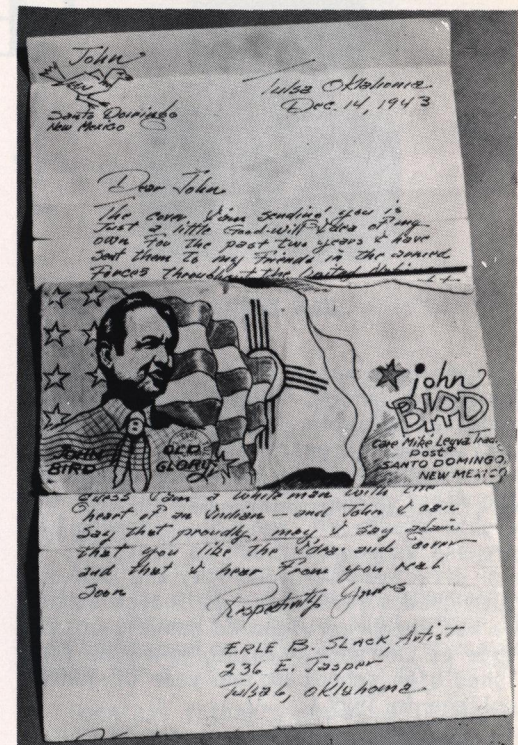 John
Santo Domingo
New Mexico
Tulsa Oklahoma
Dec. 14, 1943
Dear John
The cover I am sending you is
Just a little Good-will Idea of my
own For the past two years I have
Sent them to my Friends in the armed
Forces throughout the United
JOHN
BIRD
OLD
GLORY
john
BIRD
Care Mike Leyva Trad.
Post
SANTO DOMINGO,
NEW MEXICO
guess I am a white man with the
heart of an Indian — and John I can
Say that proudly, may I say again
that you like the Idea and cover
and that I hear From you real
Soon
Respectfully Yours
ERLE B. SLACK, Artist
236 E. Jasper
Tulsa 6, Oklahoma